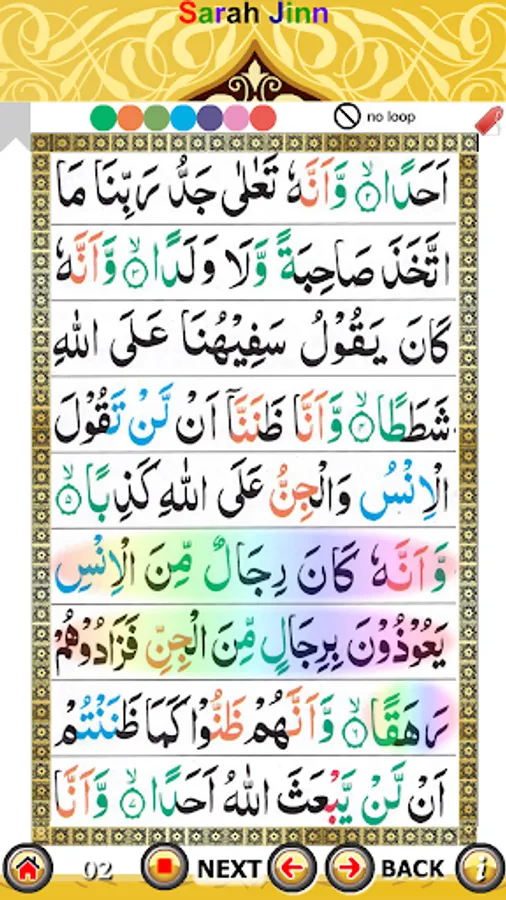 Sarah Jinn
no loop
اَحَدًا ۙ﴿۲﴾ وَّاَنَّهٗ تَعٰلٰى جَدُّ رَبِّنَا مَا
اتَّخَذَ صَاحِبَةً وَّلَا وَلَدًا ۙ﴿۳﴾ وَّاَنَّهٗ
كَانَ يَقُوْلُ سَفِيْهُنَا عَلَى اللهِ
شَطَطًا ۙ﴿۴﴾ وَّاَنَّا ظَنَنَّآ اَنْ لَّنْ تَقُوْلَ
الْاِنْسُ وَالْجِنُّ عَلَى اللهِ كَذِبًا ۙ﴿۵﴾
وَّاَنَّهٗ كَانَ رِجَالٌ مِّنَ الْاِنْسِ
يَعُوْذُوْنَ بِرِجَالٍ مِّنَ الْجِنِّ فَزَادُوْهُمْ
رَهَقًا ۙ﴿۶﴾ وَّاَنَّهُمْ ظَنُّوْا كَمَا ظَنَنْتُمْ
اَنْ لَّنْ يَّبْعَثَ اللهُ اَحَدًا ۙ﴿۷﴾ وَّاَنَّا
02 NEXT BACK i